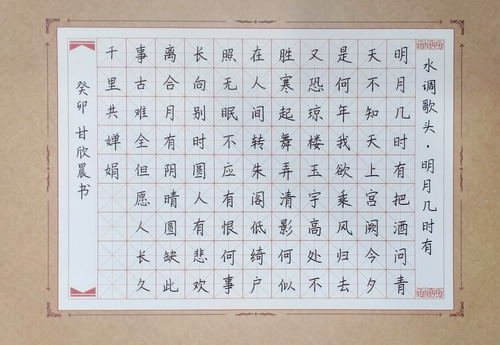 水调歌头·明月几时有
明月几时有把酒问青
天不知天上宫阙今夕
是何年我欲乘风归去
又恐琼楼玉宇高处不
胜寒起舞弄清影何似
在人间转朱阁低绮户
照无眠不应有恨何事
长向别时圆人有悲欢
离合月有阴晴圆缺此
事古难全但愿人长久
千里共婵娟
癸卯 甘欣晨书